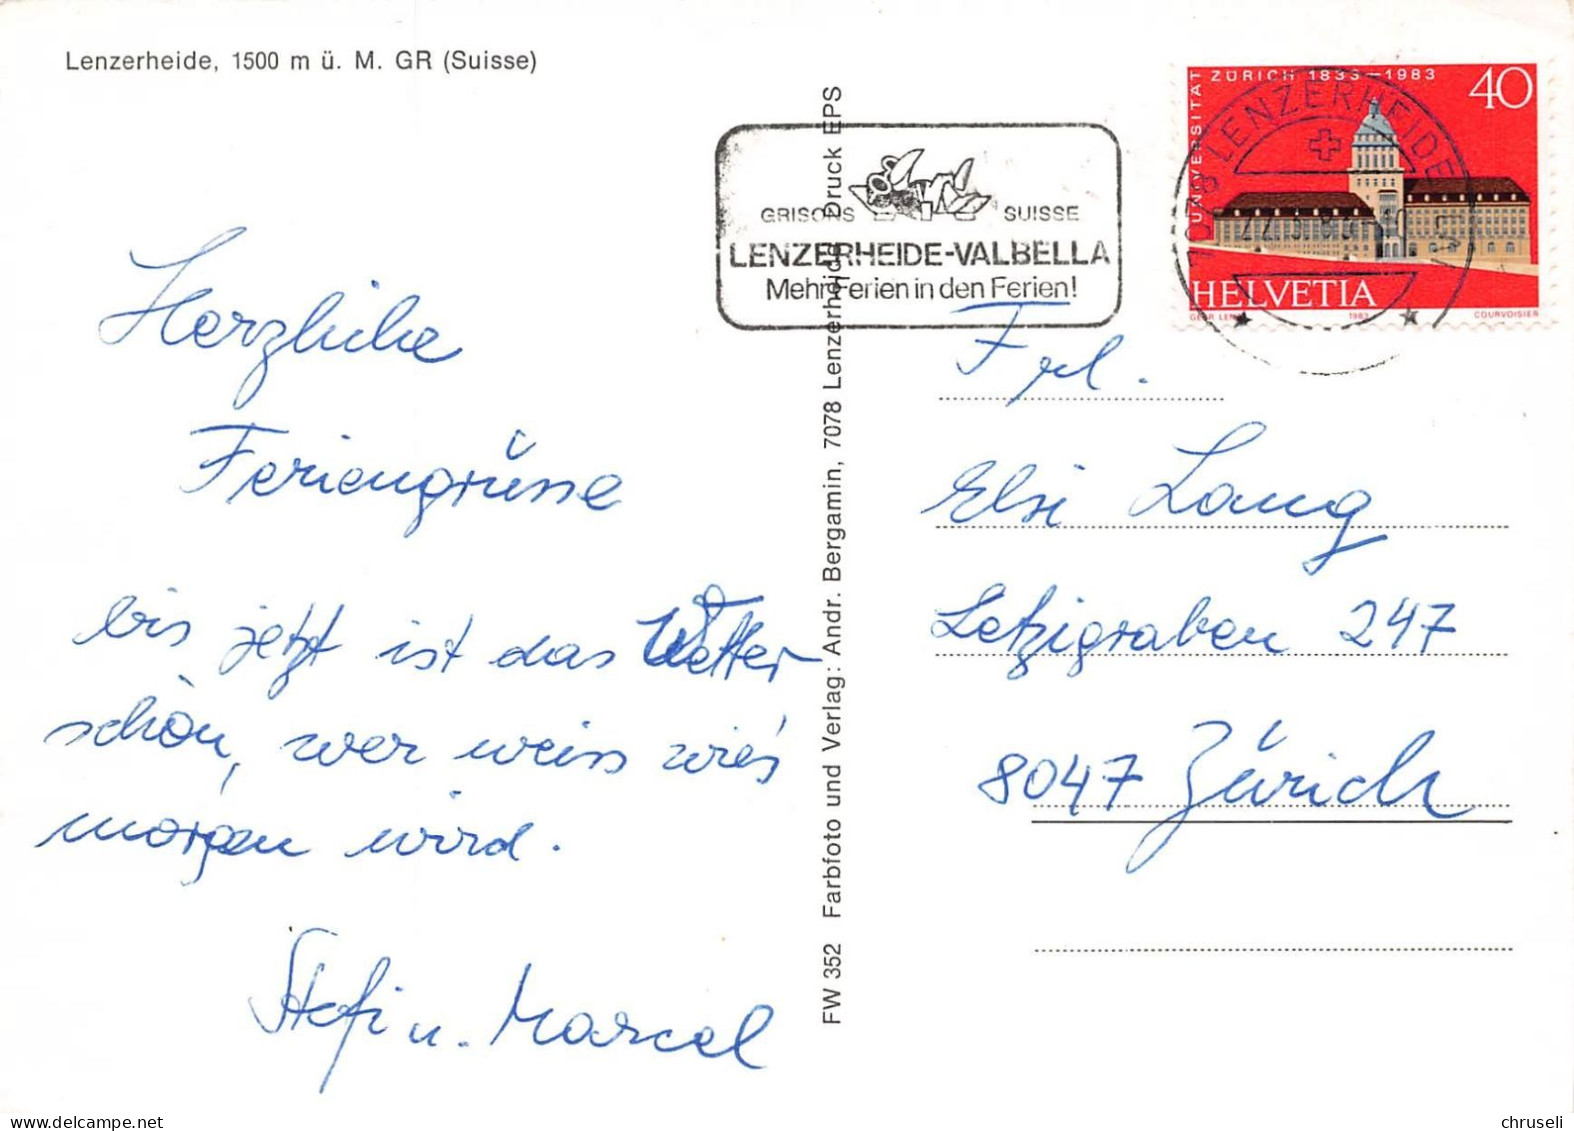 Lenzerheide, 1500 m ü. M. GR (Suisse)
Herzliche
Feriengrüsse
bis jetzt ist das Wetter
schön, wer weiss wie's
morgen wird.
Stefi u. Marcel
FW 352 Farbfoto und Verlag: Andr. Bergamin, 7078 Lenzerheide Druck EPS
GRISONS SUISSE
LENZERHEIDE-VALBELLA
Mehr Ferien in den Ferien!
UNIVERSITÄT ZÜRICH 1833–1983
40
7078 LENZERHEIDE
HELVETIA
1983 COURVOISIER
Frl.
Elsi Lang
Letzigraben 247
8047 Zürich
chruseli